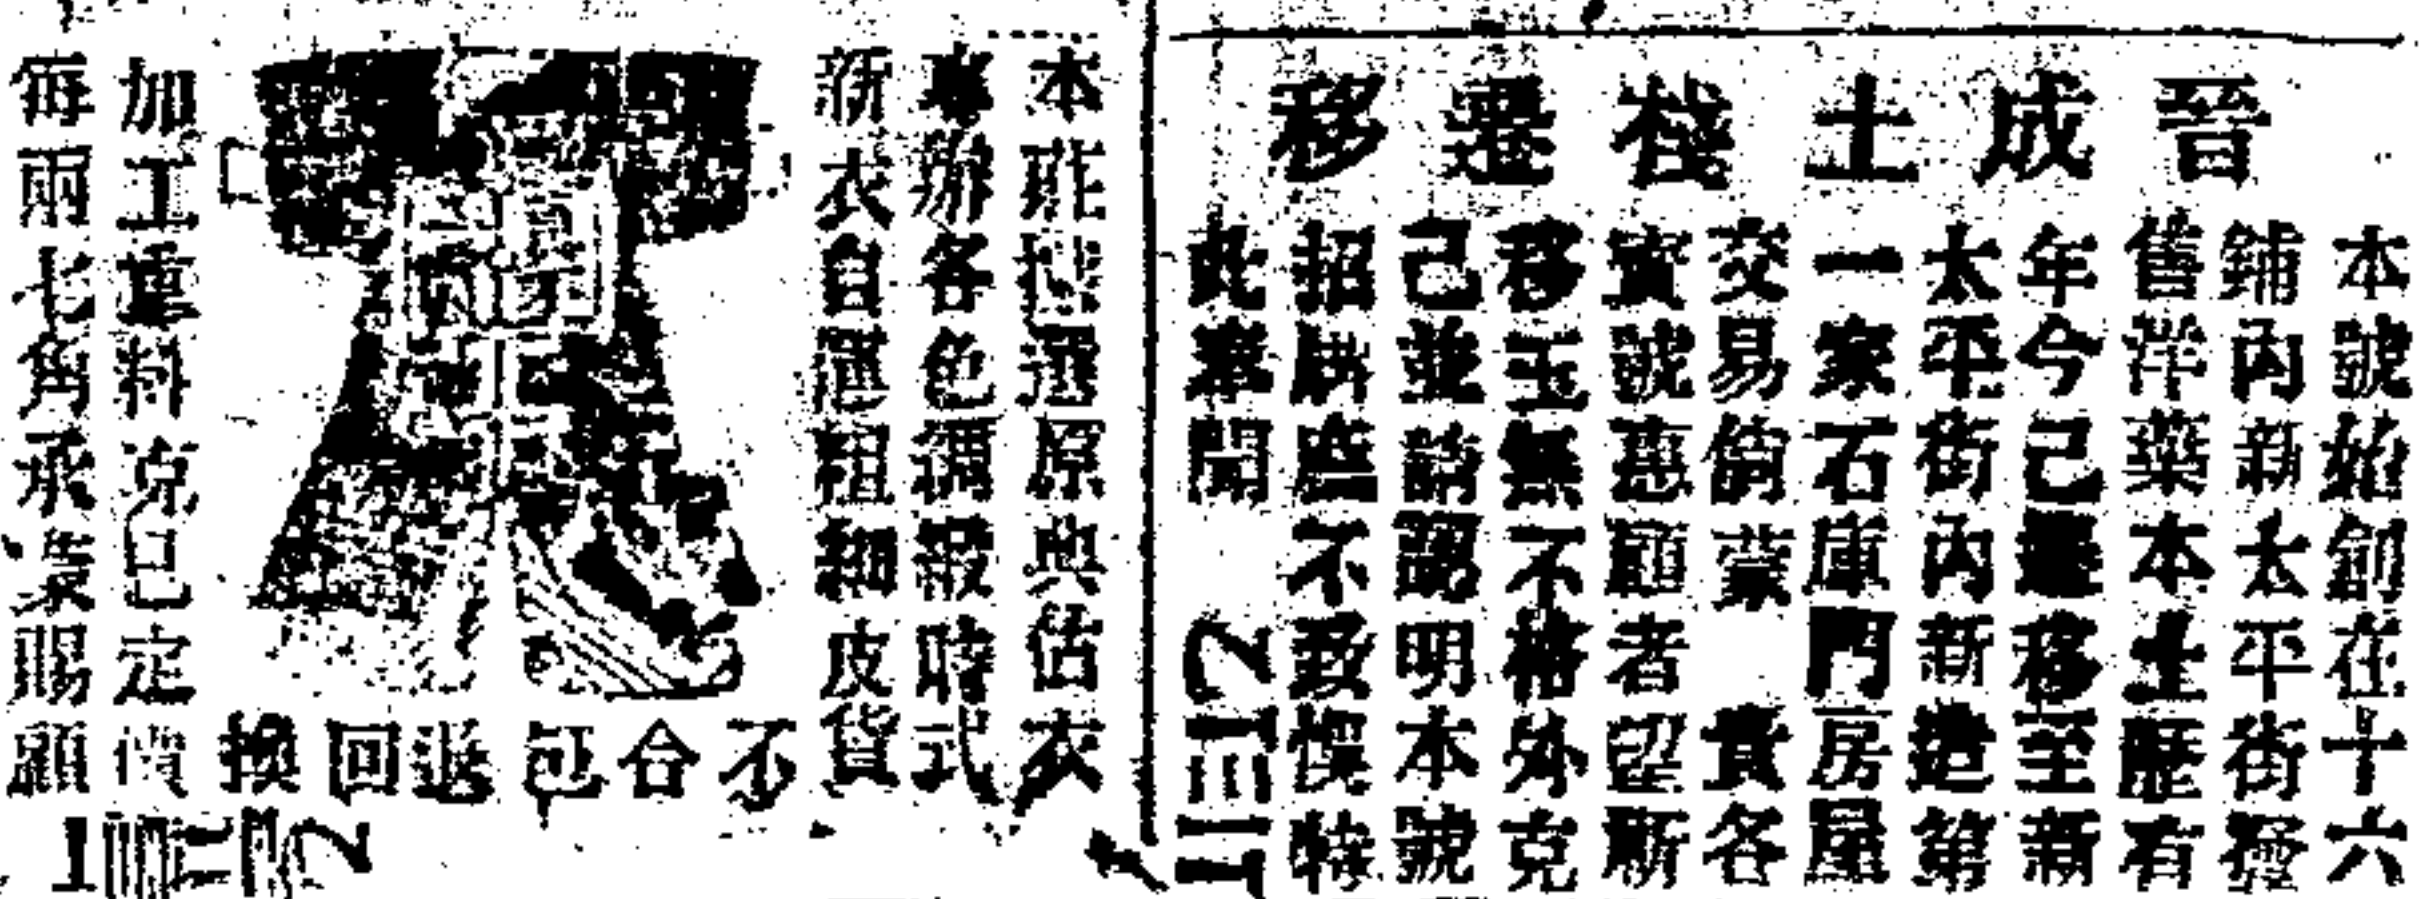 晉成土棧遷移
本號始創在十六
鋪內新太平街發
售洋藥本土歷有
年今已遷移至新
太平街內新造第
一家石庫門房屋
交易倘蒙 貴各
寶號惠顧者望駕
移玉無不格外克
己並請認明本號
招牌庶不致悞特
此奉聞
本莊揀選原典估衣
專辦各色綢緞時式
新衣自運粗細皮貨
不合包退回換
加工重料克己定價
每兩七角承蒙賜顧